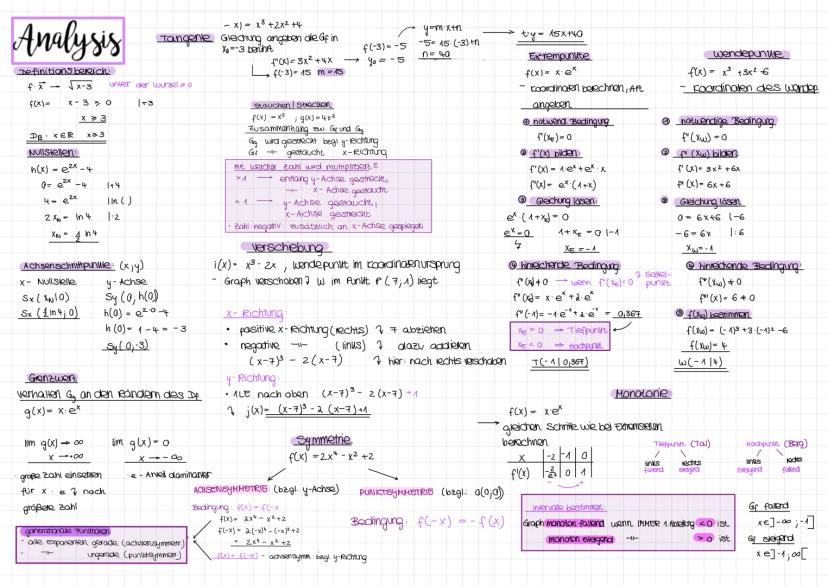 Analysis
Definitionsbereich
f: x → √x-3 unter der Wurzel ≥ 0
f(x) = x-3 ≥ 0 |+3
x ≥ 3
D_f: x ∈ ℝ x ≥ 3
Nullstellen
h(x) = e^2x - 4
0 = e^2x - 4 |+4
4 = e^2x |ln()
2x_N = ln 4 |:2
x_N = 1/2 ln 4
Achsenschnittpunkte (x;y)
x- Nullstelle y-Achse
Sx (x_N|0) Sy (0; h(0))
Sx (1/2 ln 4; 0) h(0) = e^2·0 - 4
h(0) = 1 - 4 = -3
Sy (0;-3)
Grenzwert
Verhalten Gg an den Rändern des Df
g(x) = x · e^x
lim g(x) → ∞ lim g(x) = 0
x → ∞ x → -∞
große Zahl einsetzen e-Anteil dominanter
für x · e ↳ nach
größere Zahl
- alle Exponenten gerade (achsensymmetr.)
- —"— ungerade (punktsymmetr.)
Tangente Gleichung angeben die Gf in
x₀=-3 berührt
- x) = x³ + 2x² + 4
f'(x) = 3x² + 4x
f'(-3) = 15 m = 15
f(-3) = -5
y₀ = -5
y = m·x+n
-5 = 15·(-3)+n
n = 40
t: y = 15x+40
Stauchen/Strecken
f(x) = x² ; g(x) = 4x²
Zusammenhang zw. Gf und Gg
Gg wird gestreckt bzgl y-Richtung
Gf —"— gestaucht x-Richtung
mit welcher Zahl wird multipliziert?
> 1 → entlang y-Achse gestreckt,
—"— x-Achse gestaucht
< 1 → y-Achse gestaucht,
x-Achse gestreckt
- Zahl negativ: zusätzlich an x-Achse gespiegelt
Verschiebung
i(x) = x³ - 2x , Wendepunkt im Koordinatenursprung
- Graph verschoben ↳ W im Punkt P (7;1) liegt
x- Richtung:
• positive x-Richtung (rechts) ↳ 7 abziehen
• negative —"— (links) ↳ dazu addieren
(x-7)³ - 2(x-7) ↳ hier: nach rechts verschoben
y-Richtung:
• 1LE nach oben (x-7)³ - 2(x-7) +1
↳ j(x) = (x-7)³ - 2(x-7)+1
Symmetrie
f(x) = 2x⁴ - x² + 2
ACHSENSYMMETRIE (bzgl. y-Achse)
Bedingung: f(x) = f(-x)
f(x) = 2x⁴ - x² + 2
f(-x) = 2(-x)⁴ - (-x)² + 2
= 2x⁴ - x² + 2
f(x) = f(-x) - achsensymm bzgl y-Richtung
PUNKTSYMMETRIE (bzgl.: O(0;0))
Bedingung: f(-x) = -f(x)
Extrempunkte
f(x) = x · e^x
- Koordinaten berechnen, Art
angeben
① notwend Bedingung
f'(x_E) = 0
② f'(x) bilden
f'(x) = 1·e^x + e^x · x
f'(x) = e^x · (1+x)
③ Gleichung lösen
e^x · (1+x_E) = 0
e^x = 0 1+x_E = 0 |-1
x_E = -1
④ hinreichende Bedingung
f''(x_E) ≠ 0 → wenn f''(x_E) = 0 ↳ Sattelpunkt
f''(x) = x·e^x + 2·e^x
f''(-1) = -1·e^-1 + 2·e^-1 = 0,367
x_E > 0 → Tiefpunkt
x_E < 0 → Hochpunkt
T(-1|0,367)
Wendepunkte
f(x) = x³ + 3x² - 6
- Koordinaten des Wendep
① notwendige Bedingung
f''(x_W) = 0
② f''(x_W) bilden
f'(x) = 3x² + 6x
f''(x) = 6x + 6
③ Gleichung lösen
0 = 6x+6 |-6
-6 = 6x |:6
x_W = -1
④ hinreichende Bedingung
f'''(x_W) ≠ 0
f'''(x) = 6 ≠ 0
⑤ f(x_W) bestimmen
f(x_W) = (-1)³ + 3·(-1)² - 6
f(x_W) = 4
W(-1|4)
Monotonie
f(x) = x·e^x
→ gleichen Schritte wie bei Extremstellen
berechnen
x -2 -1 0
f'(x) 0 1
- +
Tiefpunkt (Tal) Hochpunkt (Berg)
links rechts links rechts
fallend steigend steigend fallend
Intervalle bestimmen:
Graph monoton fallend wenn IMMER 1. Ableitung < 0 ist
monoton steigend —"— > 0 ist
Gf fallend
x ∈ ]-∞ ; -1]
Gf steigend
x ∈ ]-1 ; ∞[